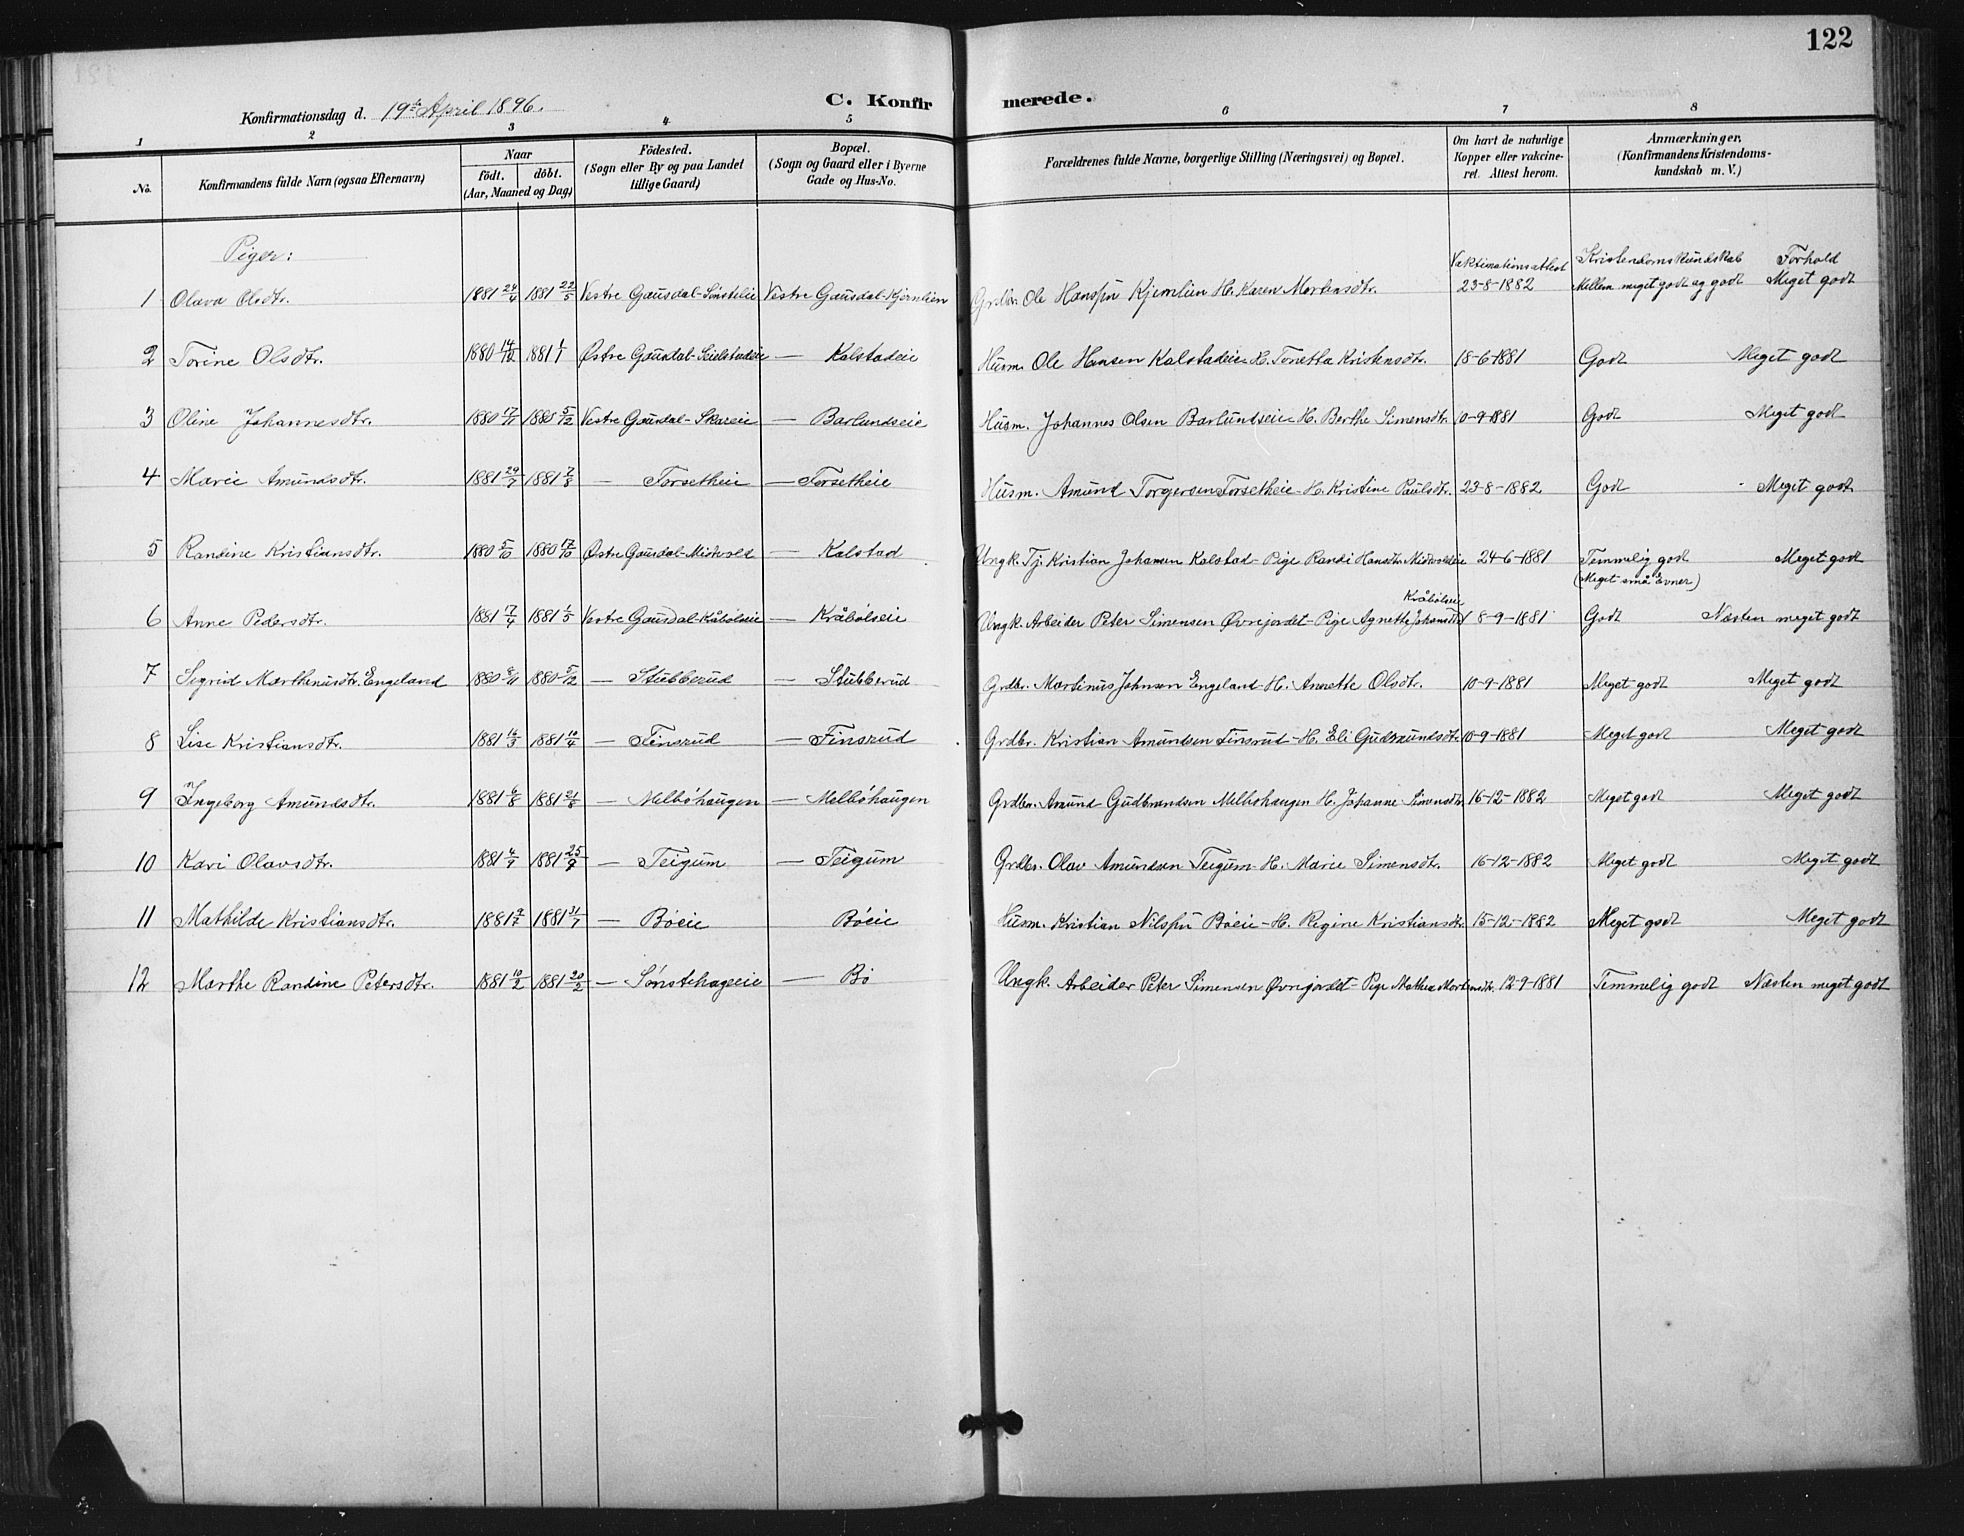 122
Konfirmationsdag d. 19de April 1896.
C. Konfirmerede.
1 2 3 4 5 6 7 8
No.
Konfirmandens fulde Navn (ogsaa Efternavn)
Naar
födt. döbt.
(Aar, Maaned og Dag)
Födested.
(Sogn eller By og paa Landet
tillige Gaard)
Bopæl.
(Sogn og Gaard eller i Byerne
Gade og Hus-No.
Forældrenes fulde Navne, borgerlige Stilling (Næringsvei) og Bopæl.
Om havt de naturlige
Kopper eller vakcine-
ret. Attest herom.
Anmærkninger,
(Konfirmandens Kristendoms-
kundskab m. V.)
Piger:
Vaktinationsattest Kristendomskundskab Forhold
1 Olava Olsdtr. 1881 24/4 1881 22/5 Vestre Gausdal-Sönsteliie Vestre Gausdal-Kjørnlien Grdbr. Ole Hanssøn Kjernlien H. Karen Mortensdtr. 23-8-1882 Mellem meget godt og godt Meget godt
2 Torine Olsdtr. 1880 14/12 1881 1/1 Østre Gausdal-Seielstadeie — Kalstadeie Husm. Ole Hansen Kalstadeie H. Tonetta Kristensdtr. 18-6-1881 Godt Meget godt
3 Oline Johannesdtr. 1880 17/11 1880 5/12 Vestre Gausdal-Skareie — Barlundseie Husm. Johannes Olsen Barlundseie H. Berthe Simensdtr. 10-9-1881 Godt Meget godt
4 Marie Amundsdtr. 1881 29/7 1881 7/8 — Forsetheie — Forsetheie Husm. Amund Torgersen Forsetheie H. Kristine Paulsdtr. 23-8-1882 Godt Meget godt
5 Randine Kristiansdtr. 1880 5/10 1880 17/10 Østre Gausdal-Midtvold — Kalstad Ungk. Tj. Kristian Johansen Kalstad - Pige Randi Hansdtr. Midtvoldeie 24-6-1881 Temmelig godt Meget godt
(Meget små Evner)
Kråbölseie
6 Anne Pedersdtr. 1881 17/4 1881 1/5 Vestre Gausdal-Kråbölseie — Kråbölseie Ungk. Arbeider Peter Simensen Øvrejordet - Pige Agnethe Johansdtr. 8-9-1881 Godt Næsten meget godt
7 Sigrid Marthinusdtr. Engeland 1880 8/11 1880 5/12 — Stubberud — Stubberud Grdbr. Martinus Johnsen Engeland - H. Annette Olsdtr. 10-9-1881 Meget godt Meget godt
8 Lise Kristiansdtr. 1881 16/3 1881 10/4 — Finsrud — Finsrud Grdbr. Kristian Amundsen Finsrud - H. Eli Gudmundsdtr. 10-9-1881 Meget godt Meget godt
9 Ingeborg Amundsdtr. 1881 6/8 1881 21/8 — Melböhaugen — Melböhaugen Grdbr. Amund Gudbrandsen Melbohaugen H. Johanne Simensdtr. 16-12-1882 Meget godt Meget godt
10 Kari Olavsdtr. 1881 4/9 1881 25/9 — Teigum — Teigum Grdbr. Olav Amundsen Teigum - H. Marie Simensdtr. 16-12-1882 Meget godt Meget godt
11 Mathilde Kristiansdtr. 1881 9/7 1881 31/7 — Böeie Böeie Husm. Kristian Nilssøn Böeie - H. Regine Kristiansdtr. 15-12-1882 Meget godt Meget godt
12 Marthe Randine Petersdtr. 1881 10/2 1881 20/2 — Sönstehageeie — Bö Ungk. Arbeider Peter Simensen Øvrejordet - Pige Mathea Mortensdtr. 12-9-1881 Temmelig godt Næsten meget godt